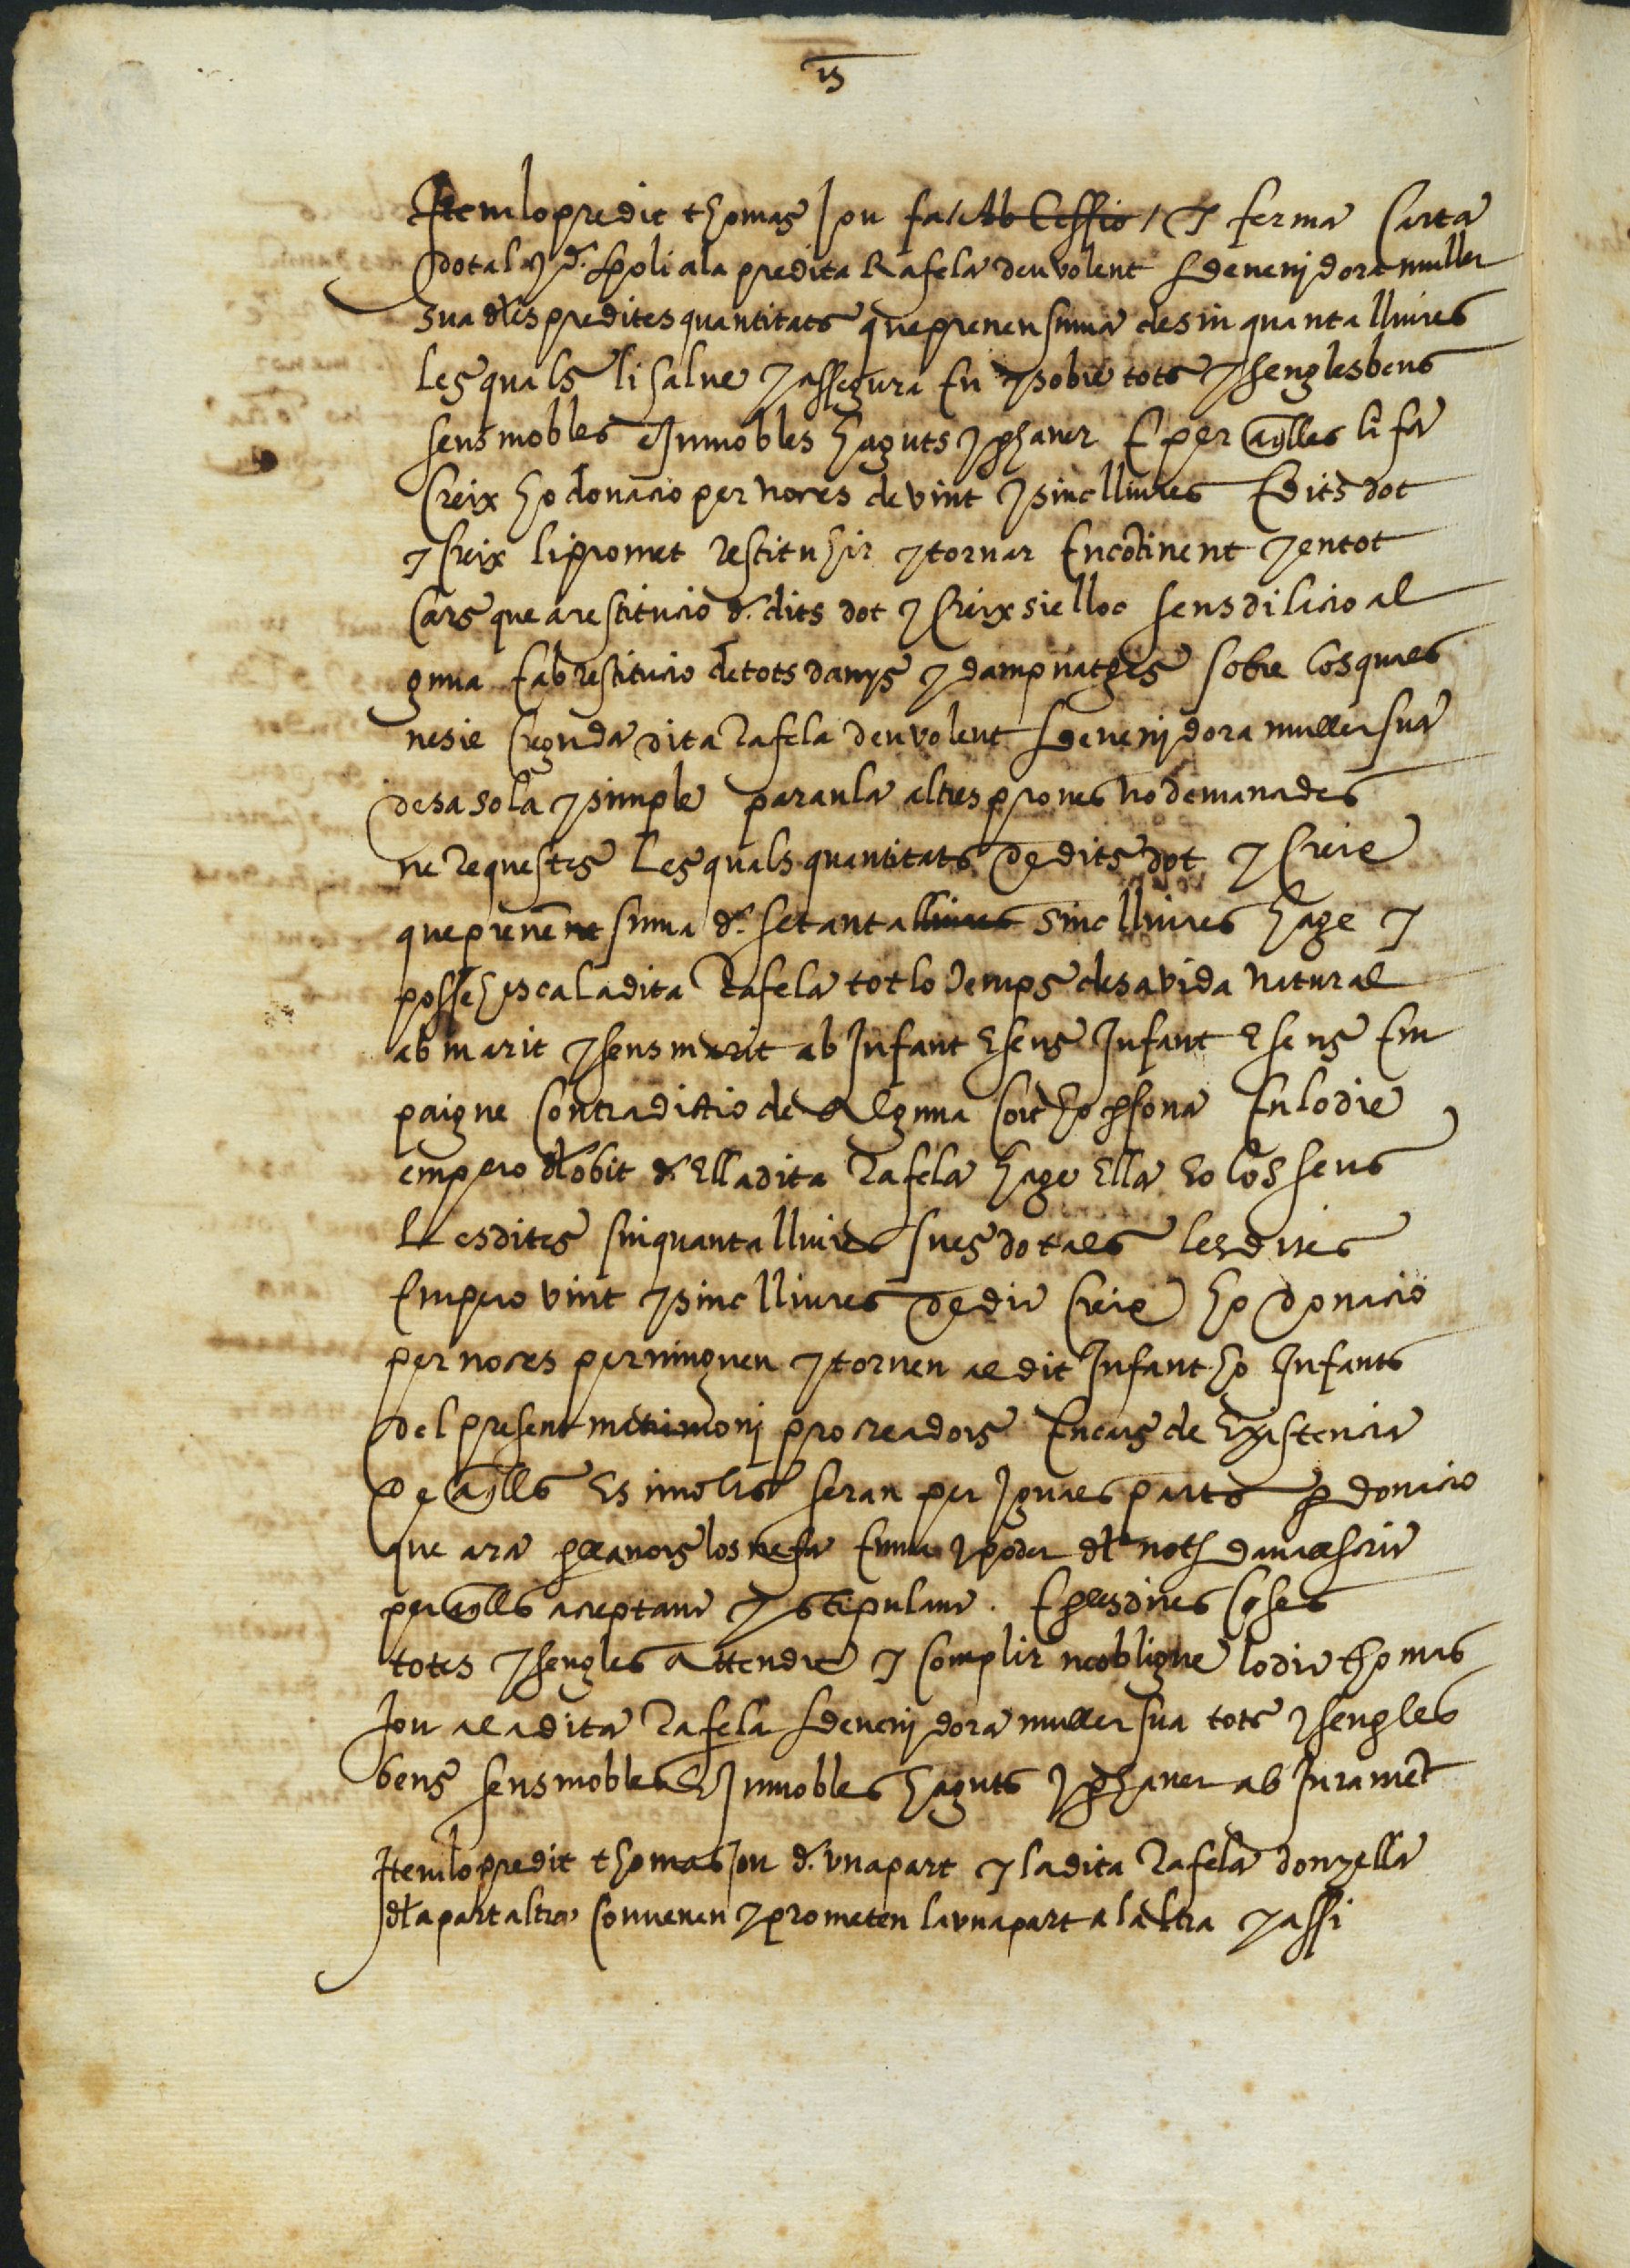 Item lo predit thomas Jou fa / Ab Cessio / y ferma Carta
dotal y d. spoli a la predita Rafela deuvolent Esdevenjdora muller
sua d les predites quantitats que prenen suma de sinquanta lliures
Les quals li salve y assegura En y sobre tots y sengles bens
sens mobles e Jnmobles haguts y per haver E per aqlles li fa
Creix ho donacio per noces de vint y sinc lliures E dits dot
y Creix li promet restituhir y tornar Encotinent y en tot
Cars que a restitucio d. dits dot y Creix sie lloc sens dilacio al
guna E ab restitucio de tots danys y dampnatges sobre los quals
ne sie Creguda dita Rafela deuvolent Esdevenjdora muller sua
de sa sola y simple paraula altres proves no demanades
ne requestes Les quals quantitats de dits dot y Creix
que prenen suma d. setanta lliures sinc lliures hage y
possehesca la dita Rafela tot lo temps de sa vida natural
ab marit y sens marit ab Jnfant E sens Jnfant E sens Em
paigne Contradictio de Alguna Cort ho psona En lo die
empero dl obit d Ella dita Rafela hage Ella Eo los seus
Les dites sinquanta lliures sues dotals les dites
Empero vint y sinc lliures de dit Creix ho donacio
per noces perninguen y tornen al dit Jnfant ho Jnfants
del present matrimonj procreadors En cas de Existencia
De aqlls Es si molts seran per Jguals parts p donacio
que ara p llavors los ne fa En ma y poder dl not devall scrit
per aqlls acceptant y stipulant. E p les dites Coses
totes y sengles Attendre y Complir ne obligue lo dit thomas
Jou a la dita Rafela Esdevenjdora muller sua tots y sengles
bens sens mobles E Jnmobles haguts y p haver ab Jurament
Item lo predit thomas Jou d. una part y la dita Rafela donzella
dl a part altra Convenen y prometen la una part a la altra y assi